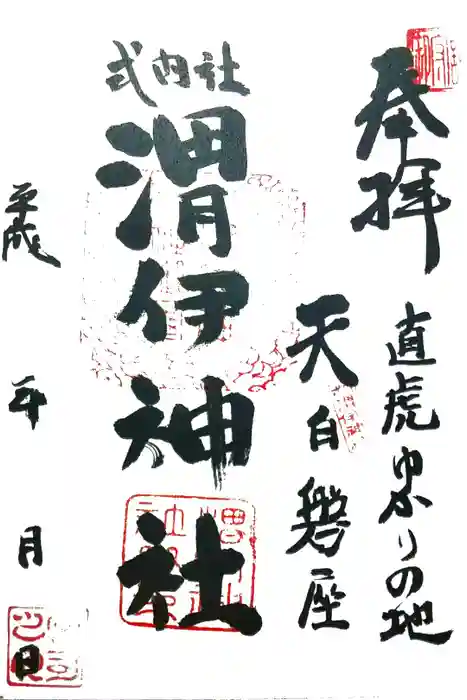 奉拝
直虎ゆかりの地
天白磐座
式内社
渭伊神社
平成 年 月 日